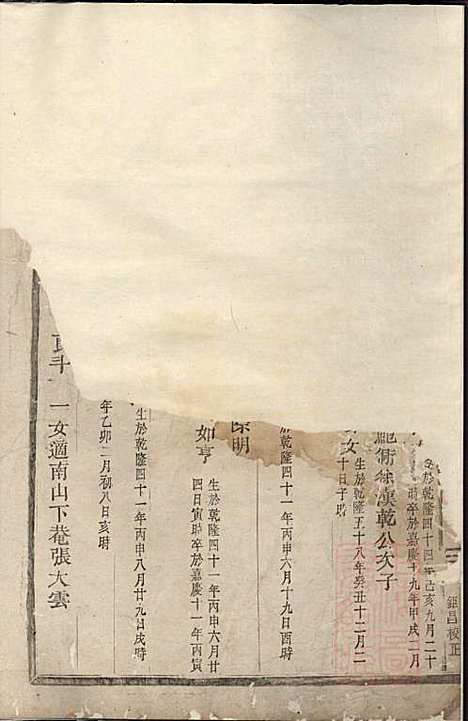 鉅昌校正
生於乾隆四十四年己亥九月二十
時卒於嘉慶十九年甲戌二月
漢乾公次子
女
生於乾隆五十八年癸丑十二月二
十日子時
於乾隆四十一年丙申六月十九日酉時
明
如亨
生於乾隆四十一年丙申六月廿
四日寅時卒於嘉慶十一年丙寅
生於乾隆四十一年丙申八月廿九日戌時
年乙卯二月初八日亥時
斗
一女適南山下巷張大雲